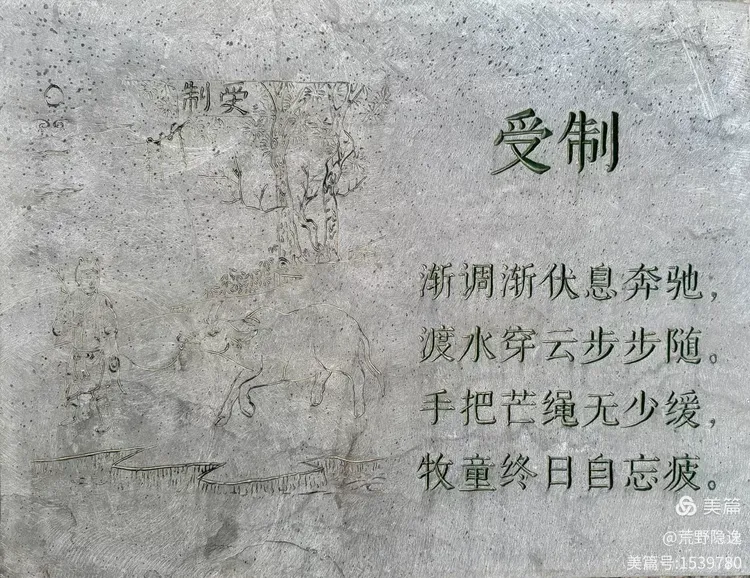 制受
受制
渐调渐伏息奔驰，
渡水穿云步步随。
手把芒绳无少缓，
牧童终日自忘疲。
美篇
@荒野隐逸
美篇号:1539780